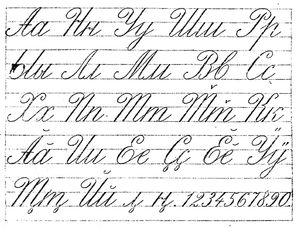 Аа Нн Уу Шш Рр
Ыы Лл Мм Вв Сс
Хх Пп Тт Т̆т̆ Кк
Ӑӑ Ии Ее Ҫҫ Ӗӗ Ӱӱ
Т̡т̡ Йй л̡ н̡ 1234567890